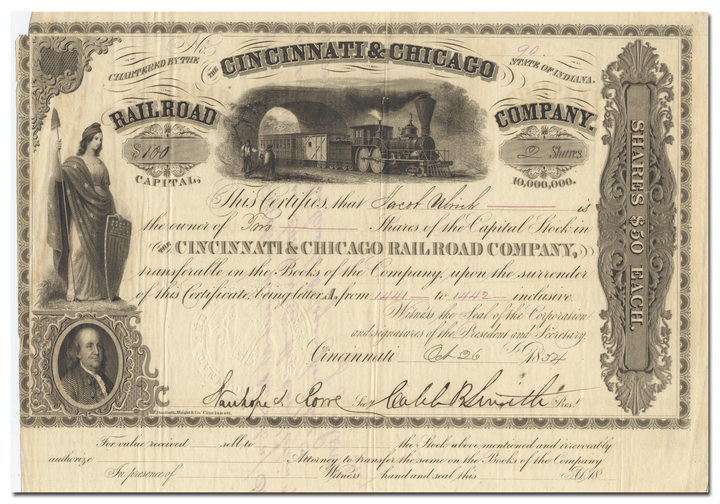 No. 90
CHARTERED BY THE THE CINCINNATI & CHICAGO STATE OF INDIANA.
RAILROAD COMPANY,
$100 2 Shares
CAPITAL, 10,000,000.
This Certifies, that Jacob Ulrich is
the owner of Two Shares of the Capital Stock in
THE CINCINNATI & CHICAGO RAILROAD COMPANY,
transferable on the Books of the Company, upon the surrender
of this Certificate, being letter A, from 1441 to 1442 inclusive.
Witness the Seal of the Corporation
and signatures of the President and Secretary.
Cincinnati Oct 26 1854
Stanhope S. Rowe Secy. Caleb B Smith Prest.
Danforth, Wright & Co. Cincinnati.
SHARES $50 EACH.
For value received sell to the Stock above mentioned and irrevocably
authorize Attorney to transfer the same on the Books of the Company
In presence of Witness hand and seal this A.D. 18